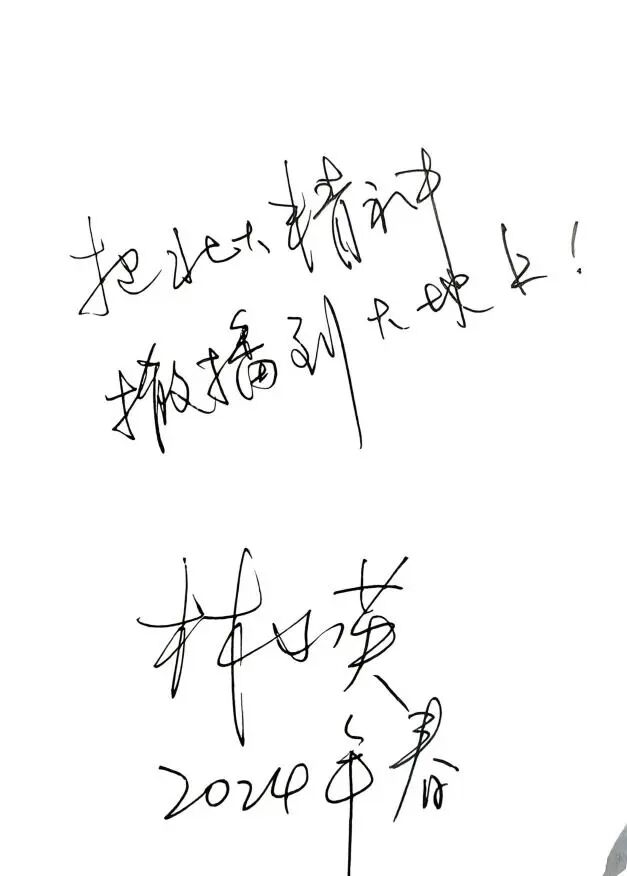 把北大精神
撒播到大地上！
林小英
2024年春